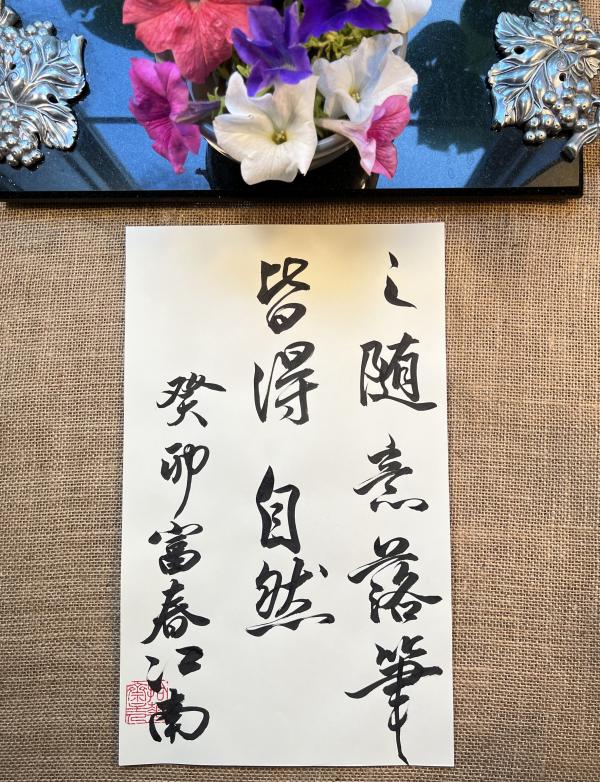 之随意落筆
皆得自然
癸卯富春江南